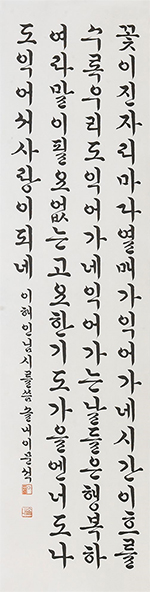 꽃이진자리마다열매가익어가네시간이흐를
수록우리도익어가네익어가는날들은행복하
여라말이필요없는고요한기도가을엔너도나
도익어서사랑이되네 이해인님시를씀